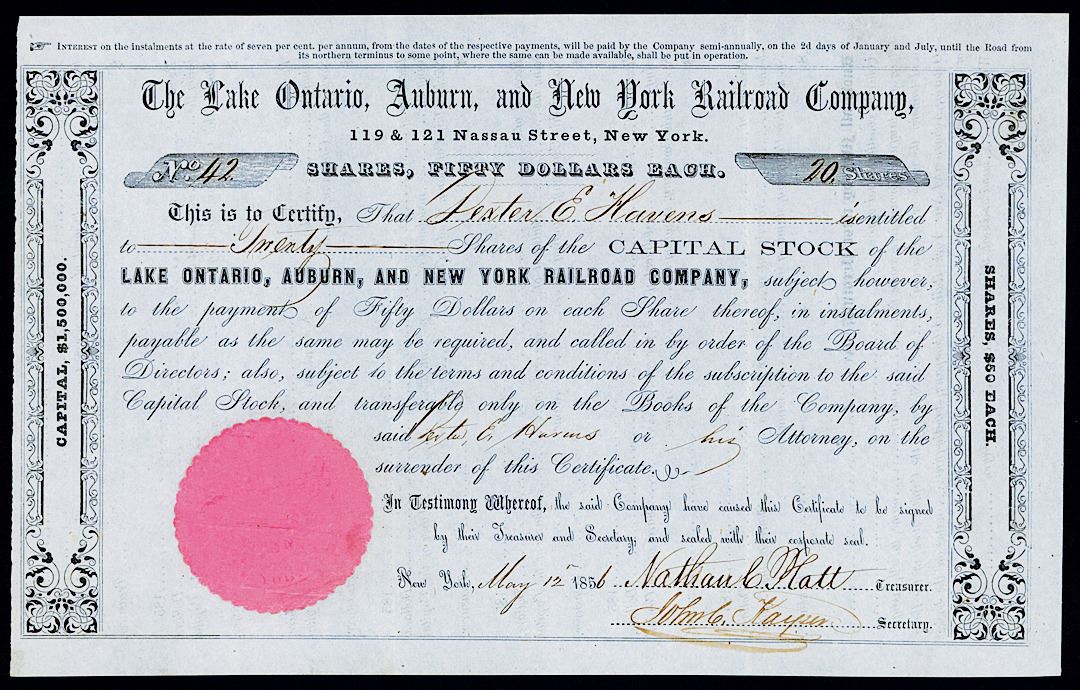 ☞ INTEREST on the instalments at the rate of seven per cent. per annum, from the dates of the respective payments, will be paid by the Company semi-annually, on the 2d days of January and July, until the Road from
its northern terminus to some point, where the same can be made available, shall be put in operation.
The Lake Ontario, Auburn, and New York Railroad Company,
119 & 121 Nassau Street, New York.
No. 42 SHARES, FIFTY DOLLARS EACH. 20 Shares
This is to Certify, That Dexter E. Havens is entitled
to Twenty Shares of the CAPITAL STOCK of the
LAKE ONTARIO, AUBURN, AND NEW YORK RAILROAD COMPANY, subject however,
to the payment of Fifty Dollars on each Share thereof, in instalments,
payable as the same may be required, and called in by order of the Board of
Directors; also, subject to the terms and conditions of the subscription to the said
Capital Stock, and transferable only on the Books of the Company, by
said Dexter E. Havens or his Attorney, on the
surrender of this Certificate.
In Testimony Whereof, the said Company have caused this Certificate to be signed
by their Treasurer and Secretary; and sealed with their corporate seal.
New York, May 12 1856 Nathan C. Platt Treasurer.
John C. Secretary.
CAPITAL, $1,500,000.
SHARES, $50 EACH.